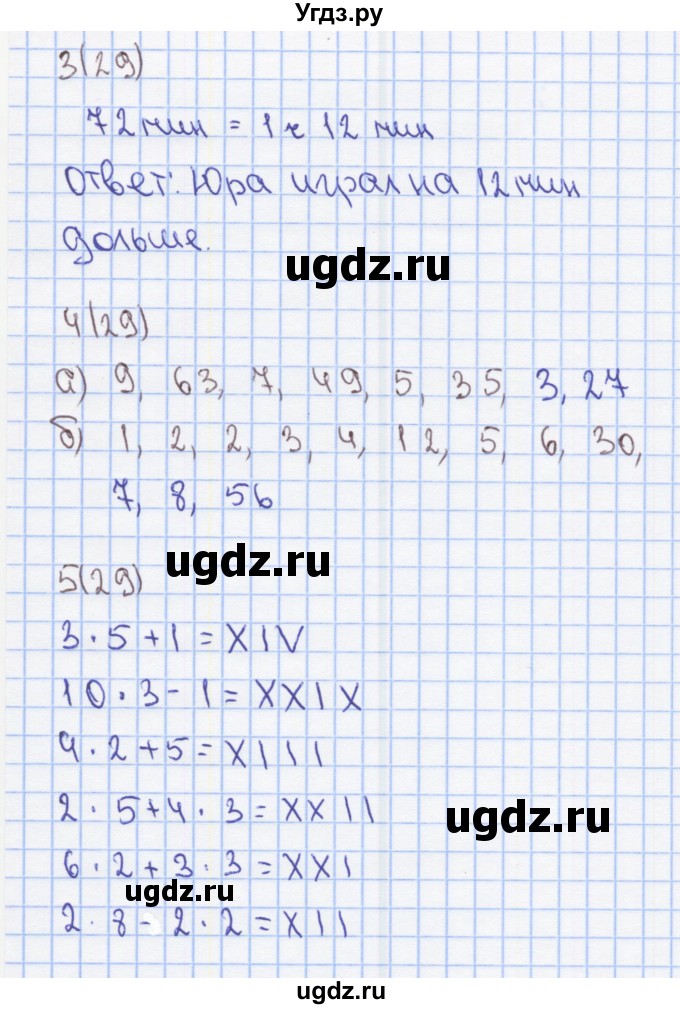 Угдз.ру
3(29)
72 мин = 1 ч 12 мин
Ответ: Юра играл на 12 мин
дольше.
ugdz.ru
4(29)
а) 9, 63, 7, 49, 5, 35, 3, 27
б) 1, 2, 2, 3, 4, 12, 5, 6, 30,
7, 8, 56
ugdz.ru
5(29)
3 · 5 + 1 = XIV
10 · 3 - 1 = XXIX
4 · 2 + 5 = XIII
2 · 5 + 4 · 3 = XXII
ugdz.ru
6 · 2 + 3 · 3 = XXI
ugdz.ru
2 · 8 - 2 · 2 = XII
ugdz.ru